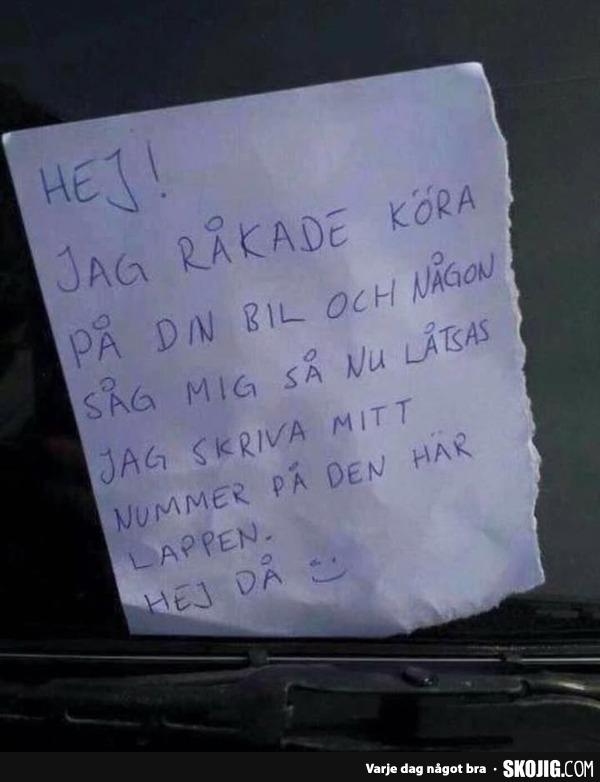 HEJ!
JAG RÅKADE KÖRA
PÅ DIN BIL OCH NÅGON
SÅG MIG SÅ NU LÅTSAS
JAG SKRIVA MITT
NUMMER PÅ DEN HÄR
LAPPEN.
HEJ DÅ :)
Varje dag något bra · SKOJIG.COM